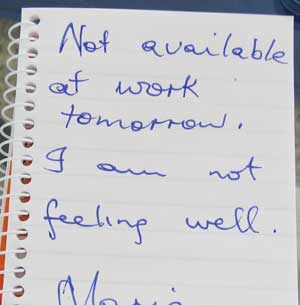 Not available
at work
tomorrow.
I am not
feeling well.